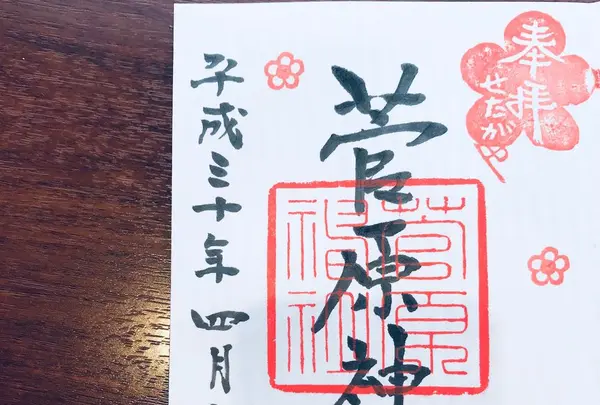 奉拝
せたがや
菅原神
菅原神社
平成三十年四月